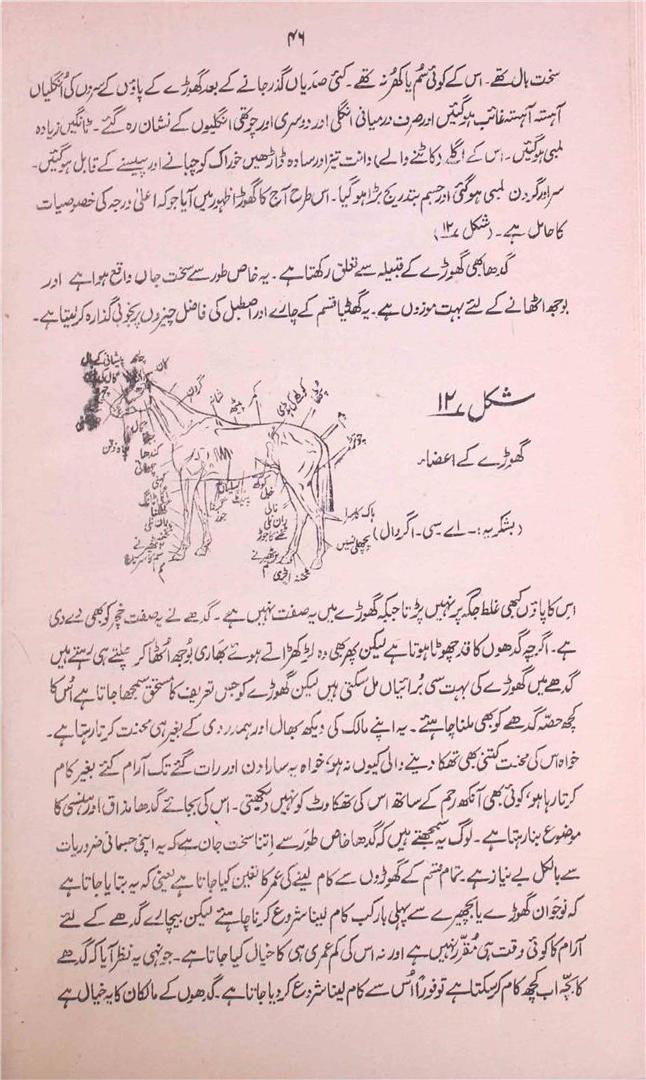 ۴۶
سخت بال تھے۔ اس کے کوئی سُم یا کھُر نہ تھے۔ کئی صدیاں گذر جانے کے بعد گھوڑے کے پاؤں کے سروں کی اُنگلیاں
آہستہ آہستہ غائب ہوگئیں اور صرف درمیانی انگلی اور دوسری اور چوتھی انگلیوں کے نشان رہ گئے۔ ٹانگیں زیادہ
لمبی ہوگئیں۔ اس کے اگلے (کاٹنے والے) دانت تیز اور سادہ ڈاڑھیں خوراک کو چبانے اور پیسنے کے قابل ہوگئیں۔
سر اور گردن لمبی ہوگئی اور جسم بتدریج بڑا ہوگیا۔ اس طرح آج کا گھوڑا ظہور میں آیا جو کہ اعلیٰ درجہ کی خصوصیات
کا حامل ہے۔ (شکل ۱۲)
گدھا بھی گھوڑے کے قبیلہ سے تعلق رکھتا ہے۔ یہ خاص طور سے سخت جاں واقع ہوا ہے اور
بوجھ اٹھانے کے لئے بہت موزوں ہے۔ یہ گھٹیا قسم کے چارے اور اصطبل کی فاضل چیزوں پر بخوبی گذارہ کر لیتا ہے۔
پیشانی کے بال
کان
گردن
شانہ
پیٹھ
کمر
کولہے کی ہڈی
پٹھا
دم
چوتڑ
شکل ۱۲
گھوڑے کے اعضاء
(بشکریہ:۔ اے۔ سی۔ اگروال)
اس کا پاؤں کبھی غلط جگہ پر نہیں پڑتا جبکہ گھوڑے میں یہ صفت نہیں ہے۔ گدھے نے یہ صفت خچر کو بھی دے دی
ہے۔ اگرچہ گدھوں کا قد چھوٹا ہوتا ہے لیکن پھر بھی وہ لڑکھڑاتے ہوئے بھاری بُوجھ اُٹھا کر چلتے ہی رہتے ہیں
گدھے میں گھوڑے کی بہت سی بُرائیاں مل سکتی ہیں لیکن گھوڑے کو جس تعریف کا مستحق سمجھا جاتا ہے اُس کا
کچھ حصّہ گدھے کو بھی ملنا چاہئے۔ یہ اپنے مالک کی دیکھ بھال اور ہمدردی کے بغیر ہی محنت کرتا رہتا ہے۔
خواہ اس کی محنت کتنی بھی تھکا دینے والی کیوں نہ ہو، خواہ یہ سارا دن اور رات گئے تک آرام کئے بغیر کام
کرتا رہا ہو، کوئی بھی آنکھ رحم کے ساتھ اس کی تھکاوٹ کو نہیں دیکھتی۔ اس کی بجائے گدھا مذاق اور ہنسی کا
موضوع بنا رہتا ہے۔ لوگ یہ سمجھتے ہیں کہ گدھا خاص طور سے اِتنا سخت جان ہے کہ یہ اپنی جسمانی ضروریات
سے بالکل بے نیاز ہے۔ تمام قسم کے گھوڑوں سے کام لینے کی عمر کا تعین کیا جاتا ہے یعنی کہ یہ بتایا جاتا ہے
کہ نوجوان گھوڑے یا بچھیرے سے پہلی بار کب کام لینا شروع کرنا چاہئے لیکن بیچارے گدھے کے لئے
آرام کا کوئی وقت ہی مُقرّر نہیں ہے اور نہ اس کی کم عمری ہی کا خیال کیا جاتا ہے۔ جونہی یہ نظر آیا کہ گدھے
کا بچّہ اب کچھ کام کر سکتا ہے تو فوراً اُس سے کام لینا شروع کر دیا جاتا ہے۔ گدھوں کے مالکان کا یہ خیال ہے